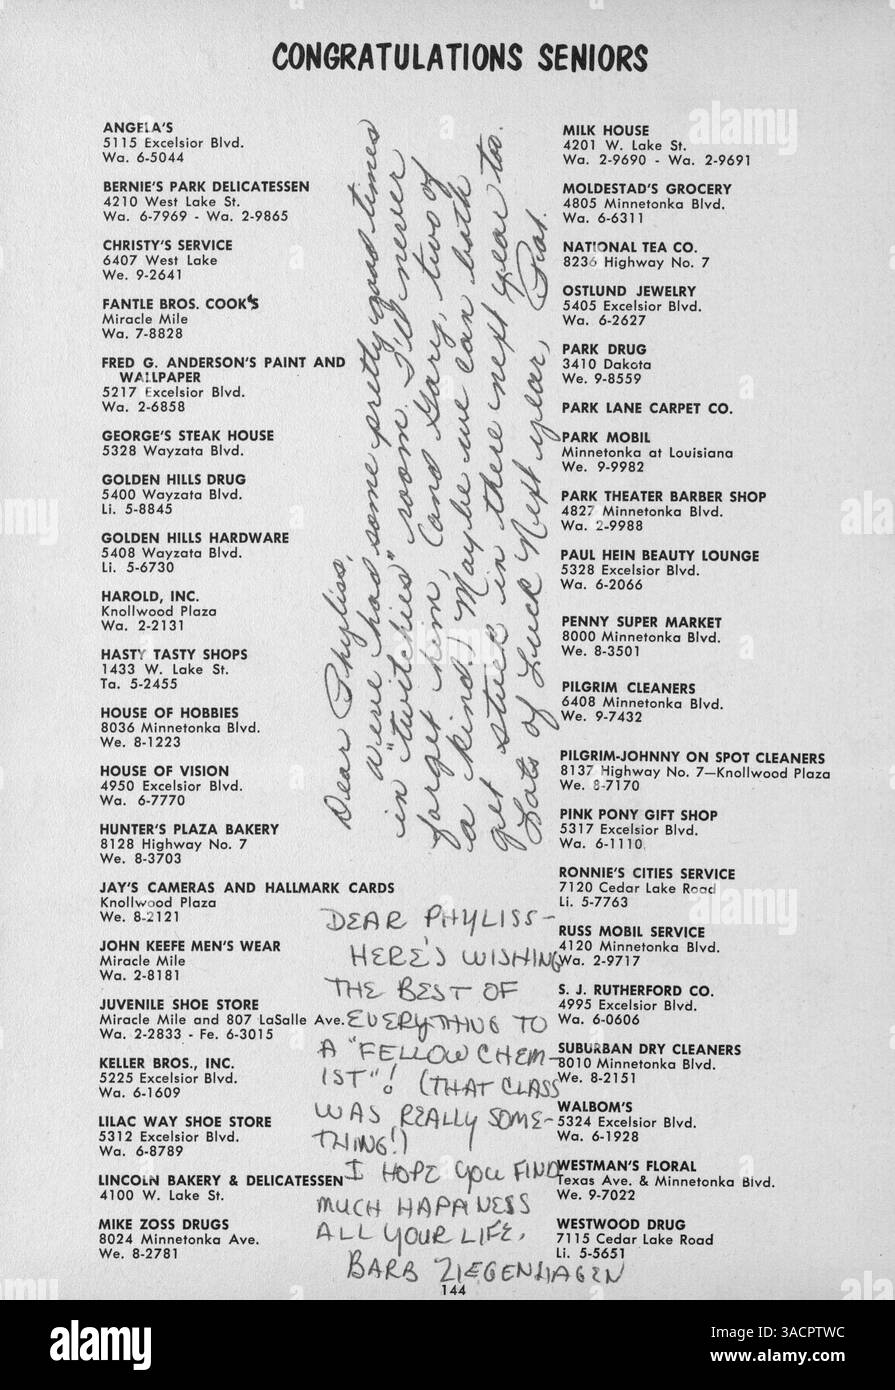 CONGRATULATIONS SENIORS
ANGELA'S
5115 Excelsior Blvd.
Wa. 6-5044
BERNIE'S PARK DELICATESSEN
4210 West Lake St.
Wa. 6-7969 - Wa. 2-9865
CHRISTY'S SERVICE
6407 West Lake
We. 9-2641
FANTLE BROS. COOK'S
Miracle Mile
Wa. 7-8828
FRED G. ANDERSON'S PAINT AND
WALLPAPER
5217 Excelsior Blvd.
Wa. 2-6858
GEORGE'S STEAK HOUSE
5328 Wayzata Blvd.
GOLDEN HILLS DRUG
5400 Wayzata Blvd.
Li. 5-8845
GOLDEN HILLS HARDWARE
5408 Wayzata Blvd.
Li. 5-6730
HAROLD, INC.
Knollwood Plaza
Wa. 2-2131
HASTY TASTY SHOPS
1433 W. Lake St.
Ta. 5-2455
HOUSE OF HOBBIES
8036 Minnetonka Blvd.
We. 8-1223
HOUSE OF VISION
4950 Excelsior Blvd.
Wa. 6-7770
HUNTER'S PLAZA BAKERY
8128 Highway No. 7
We. 8-3703
JAY'S CAMERAS AND HALLMARK CARDS
Knollwood Plaza
We. 8-2121
JOHN KEEFE MEN'S WEAR
Miracle Mile
Wa. 2-8181
JUVENILE SHOE STORE
Miracle Mile and 807 LaSalle Ave.
Wa. 2-2833 - Fe. 6-3015
KELLER BROS., INC.
5225 Excelsior Blvd.
Wa. 6-1609
LILAC WAY SHOE STORE
5312 Excelsior Blvd.
Wa. 6-8789
LINCOLN BAKERY & DELICATESSEN
4100 W. Lake St.
MIKE ZOSS DRUGS
8024 Minnetonka Ave.
We. 8-2781
Dear Phyliss,
We've had some pretty good times
in "twitchies" room. I'll never
forget him, (and Gary, two of
a kind.) Maybe we can both
get stuck in there next year too.
Lots of Luck Next year,
Pat.
DEAR PHYLISS-
HERE'S WISHING
THE BEST OF
EVERYTHING TO
A "FELLOW CHEM-
IST"! (THAT CLASS
WAS REALLY SOME-
THING!)
I HOPE YOU FIND
MUCH HAPPINESS
ALL YOUR LIFE,
BARB ZIEGENHAGEN
MILK HOUSE
4201 W. Lake St.
Wa. 2-9690 - Wa. 2-9691
MOLDESTAD'S GROCERY
4805 Minnetonka Blvd.
Wa. 6-6311
NATIONAL TEA CO.
8236 Highway No. 7
OSTLUND JEWELRY
5405 Excelsior Blvd.
Wa. 6-2627
PARK DRUG
3410 Dakota
We. 9-8559
PARK LANE CARPET CO.
PARK MOBIL
Minnetonka at Louisiana
We. 9-9982
PARK THEATER BARBER SHOP
4827 Minnetonka Blvd.
Wa. 2-9988
PAUL HEIN BEAUTY LOUNGE
5328 Excelsior Blvd.
Wa. 6-2066
PENNY SUPER MARKET
8000 Minnetonka Blvd.
We. 8-3501
PILGRIM CLEANERS
6408 Minnetonka Blvd.
We. 9-7432
PILGRIM-JOHNNY ON SPOT CLEANERS
8137 Highway No. 7—Knollwood Plaza
We. 8-7170
PINK PONY GIFT SHOP
5317 Excelsior Blvd.
Wa. 6-1110
RONNIE'S CITIES SERVICE
7120 Cedar Lake Road
Li. 5-7763
RUSS MOBIL SERVICE
4120 Minnetonka Blvd.
Wa. 2-9717
S. J. RUTHERFORD CO.
4995 Excelsior Blvd.
Wa. 6-0606
SUBURBAN DRY CLEANERS
8010 Minnetonka Blvd.
We. 8-2151
WALBOM'S
5324 Excelsior Blvd.
Wa. 6-1928
WESTMAN'S FLORAL
Texas Ave. & Minnetonka Blvd.
We. 9-7022
WESTWOOD DRUG
7115 Cedar Lake Road
Li. 5-5651
144
alamy
Image ID: 3ACPTWC
www.alamy.com